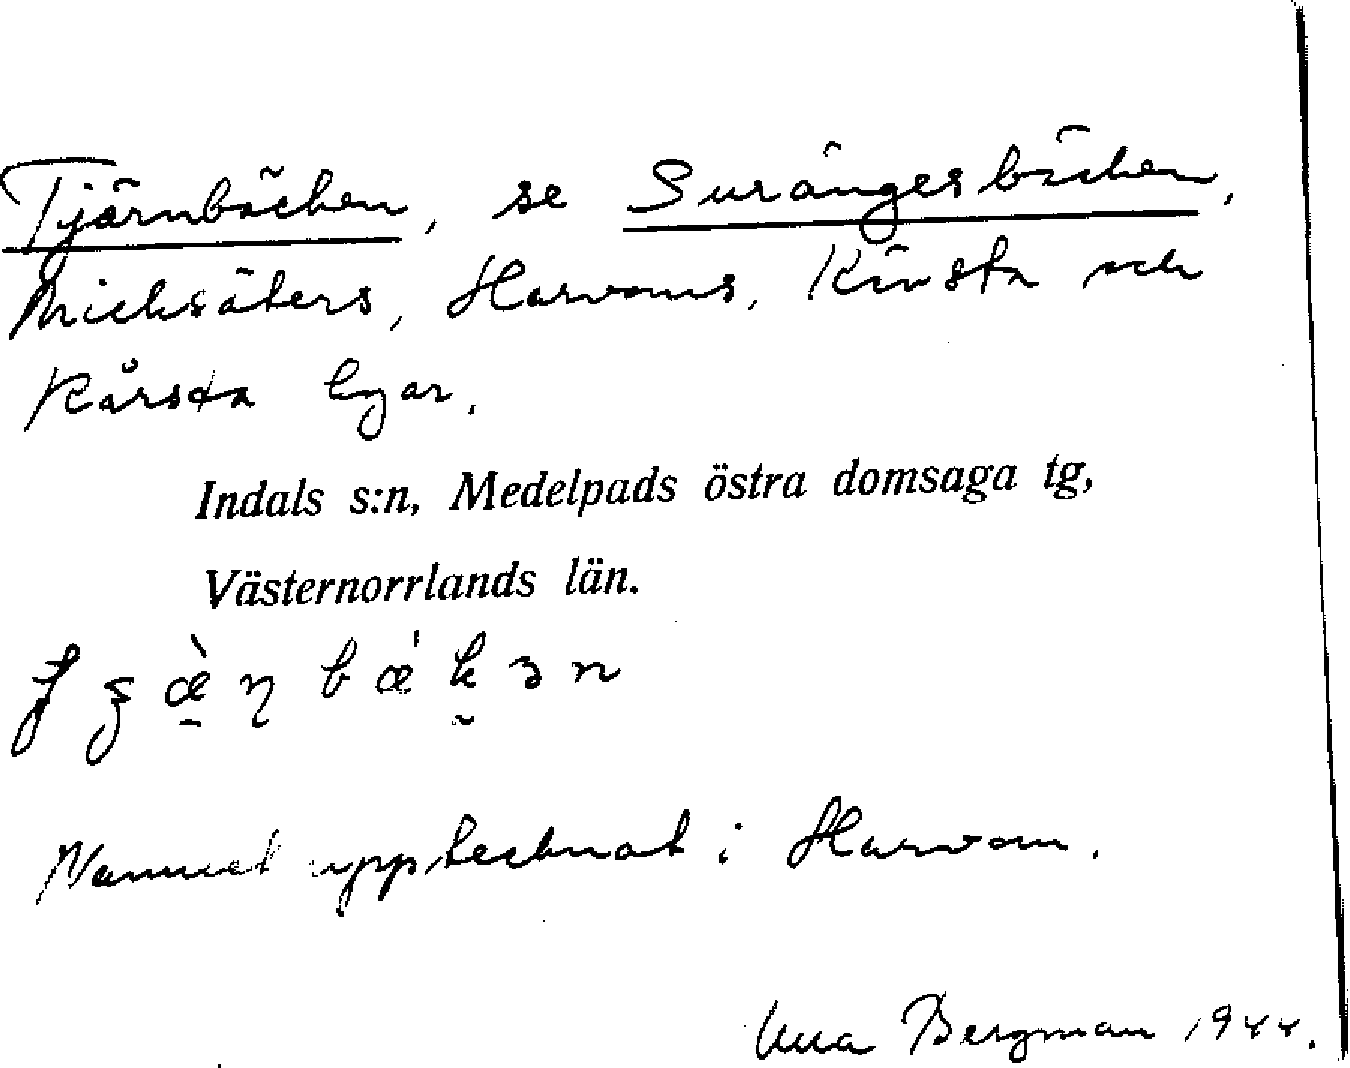 Tjärnbäcken, se Surängesbäcken,
Micksäters, Harvoms, Kävsta och
Kårsta byar.
Indals s:n, Medelpads östra domsaga tg,
Västernorrlands län.
Namnet upptecknat i Harvom.
Una Bergman 1944.